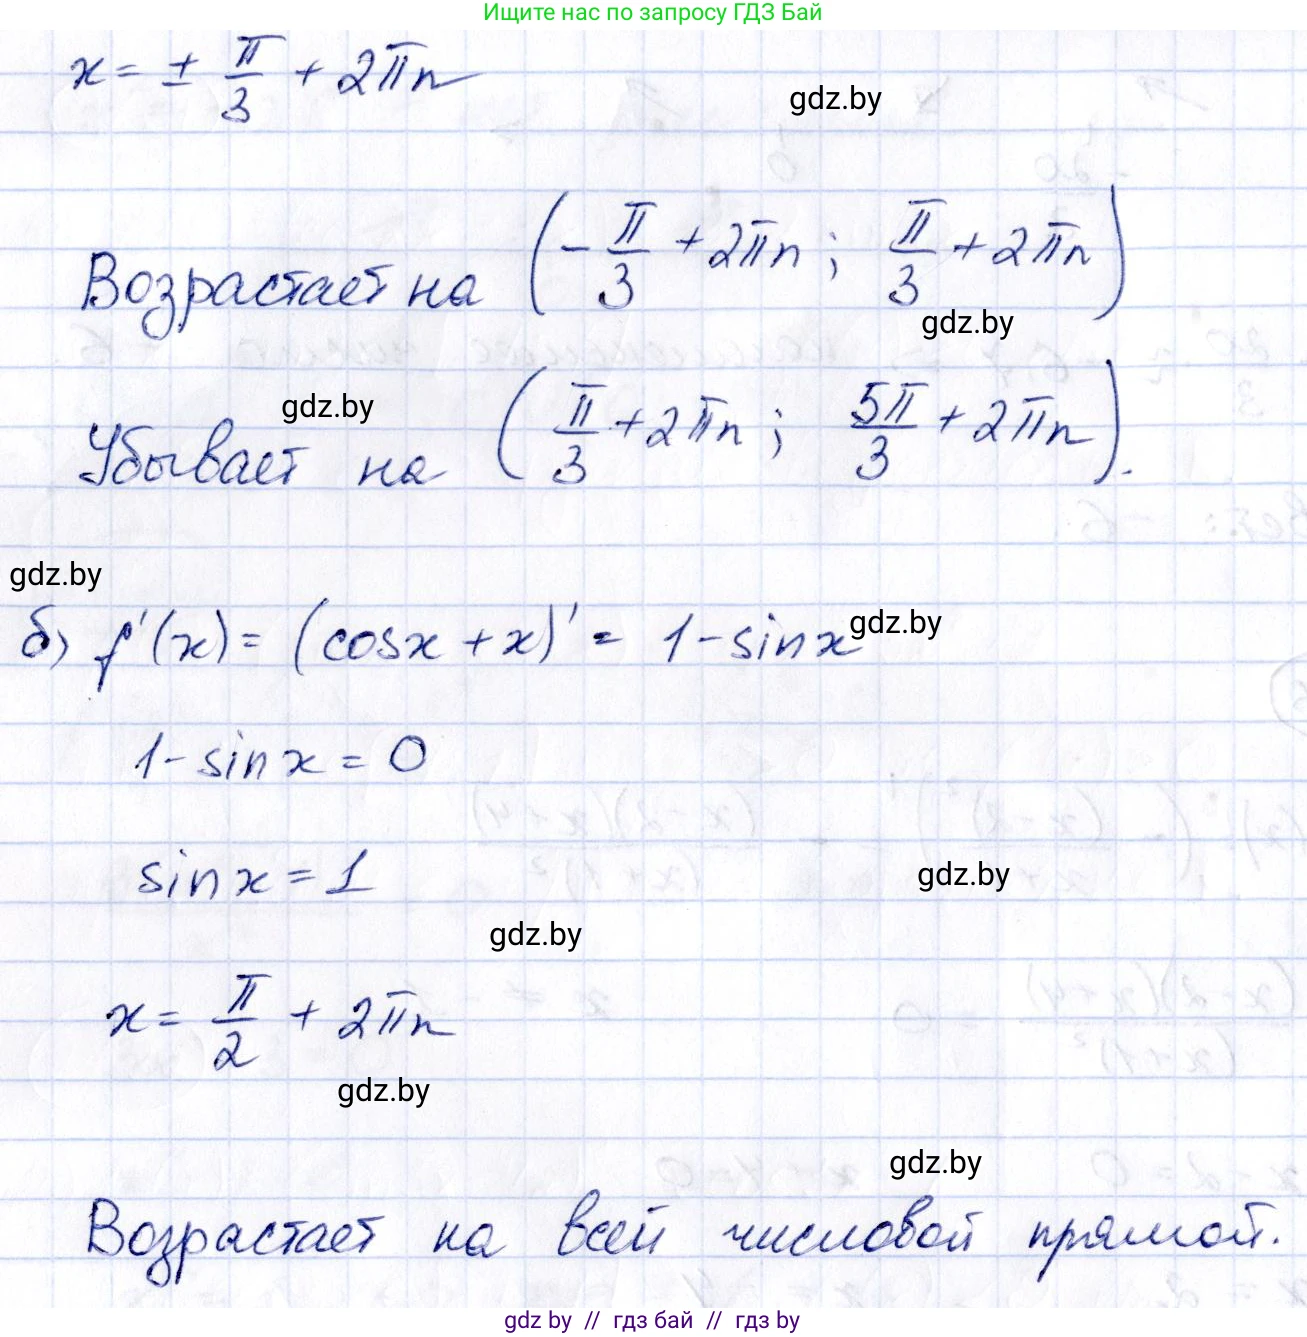 Ищите нас по запросу ГДЗ Бай
x = ± π/3 + 2πn
gdz.by
Возрастает на (-π/3 + 2πn; π/3 + 2πn)
gdz.by
gdz.by
Убывает на (π/3 + 2πn; 5π/3 + 2πn).
gdz.by
б) f'(x) = (cosx + x)' = 1 - sinx
gdz.by
1 - sinx = 0
sinx = 1
gdz.by
gdz.by
x = π/2 + 2πn
gdz.by
gdz.by
Возрастает на всей числовой прямой.
gdz.by // гдз бай // гдз by